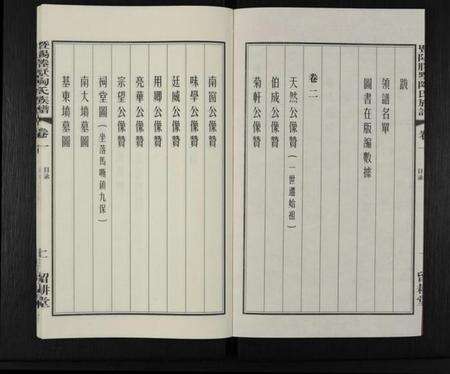 跋
領譜名單
圖書在版編數據
卷二
天然公像贊(一世遷始祖)
伯成公像贊
菊軒公像贊
南窗公像贊
味學公像贊
廷威公像贊
用卿公像贊
亮華公像贊
宗望公像贊
祠堂圖(坐落馬嘶鎮九保)
南大墳墓圖
基東墳墓圖
卷一
目录